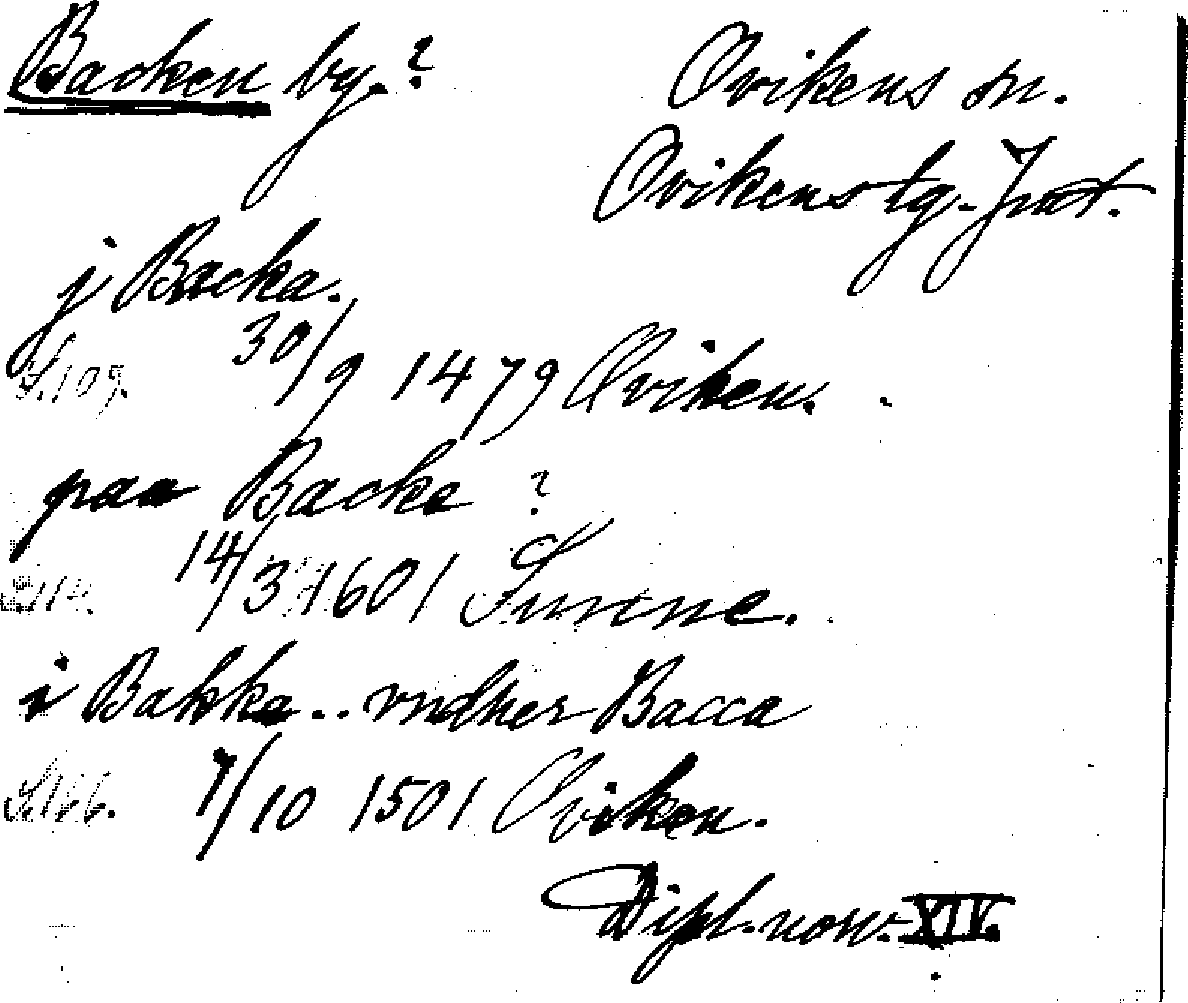 Backen by.?
Ovikens sn.
Ovikens tg. Jmt.
j Backa.
S.109. 30/9 1479 Oviken.
paa Backe ?
S.114. 14/3 1601 Sunne.
i Bakka.. vndher Bacca
S.166. 7/10 1501 Oviken.
Dipl. norv. XIV.